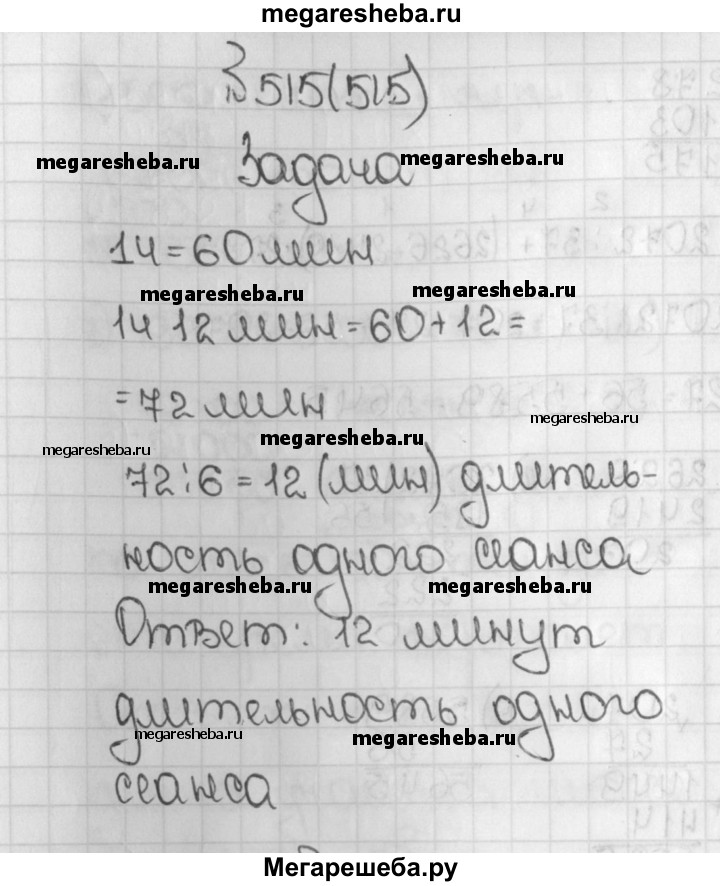 megaresheba.ru
№ 515(515)
megaresheba.ru Задача megaresheba.ru
1ч=60мин
megaresheba.ru megaresheba.ru
1ч 12 мин=60+12=
=72мин
megaresheba.ru
megaresheba.ru megaresheba.ru
72:6=12(мин) длитель-
ность одного сеанса
megaresheba.ru megaresheba.ru
Ответ: 12 минут
длительность одного
megaresheba.ru megaresheba.ru
сеанса
Мегарешеба.ру